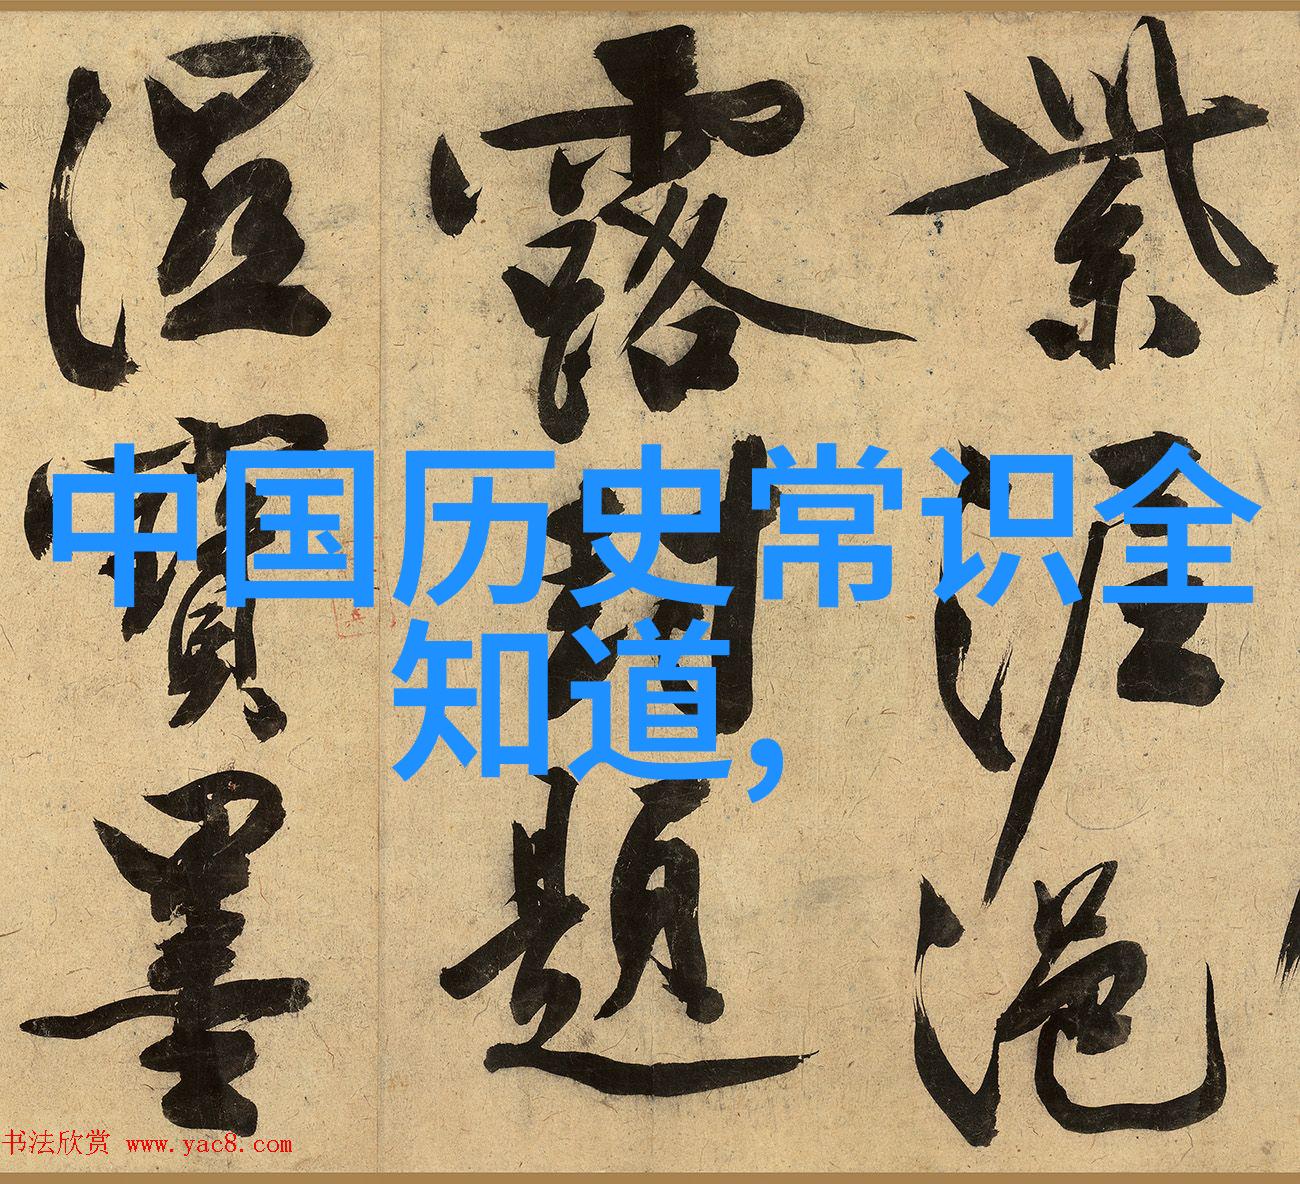 紫泥浥
露封題
濕寶墨
中国历史常识全
知道,
书法欣赏 www.yac8.com